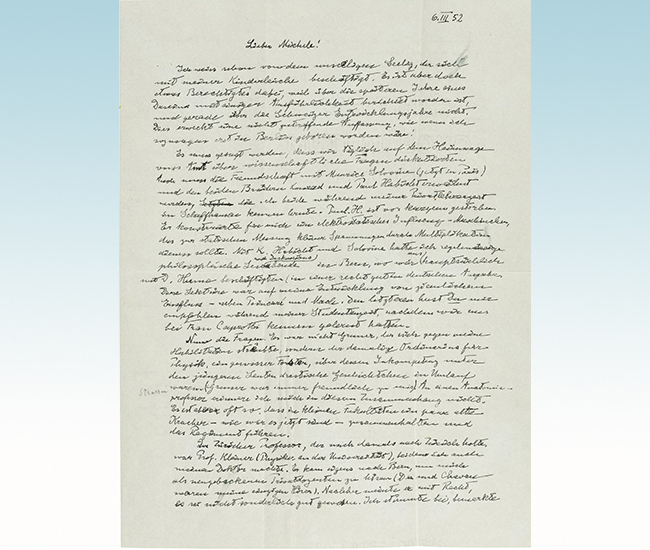 6. III 52
Lieber Michele!
Ich weiss schon von dem unseligen Seelig, der sich
mit meiner Kinderwäsche beschäftigt. Es ist aber doch
etwas Berechtigtes dabei, weil über die späteren Jahre eines
Daseins mit einiger Ausführlichkeit berichtet worden ist,
und gerade über die Schweizer Entwicklungsjahre nicht.
Dies erweckt eine nicht zutreffende Auffassung, wie wenn ich
sozusagen erst in Berlin geboren worden wäre!
Es muss gesagt werden, dass wir täglich auf dem Heimwege
vom Amt über wissenschaftliche Fragen diskutierten
auch muss die Freundschaft mit Maurice Solovine (jetzt in Paris)
und den beiden Brüdern Conrad und Paul Habicht erwähnt
werden, die ich beide während meiner Privatlehrerzeit
in Schaffhausen kennen lernte. Paul H. ist vor kurzem gestorben.
Er konstruierte für mich ein elektrostatisches Maschinchen,
das zur statischen Messung kleiner Spannungen durch Multiplikation
dienen sollte. Mit K. Habicht und Solovine hatte ich regelmässige
philosophische Lese und Diskussions Abende in Bern, wo wir uns hauptsächlich
mit D. Hume beschäftigten (in einer recht guten deutschen Ausgabe).
Diese Lektüre war auf meine Entwicklung von ziemlichem
Einfluss – neben Poincaré und Mach. Den letzteren hast Du mir
empfohlen während meiner Studentenzeit, nachdem wir uns
bei Frau Caprotti kennen gelernt hatten.
Nun die Fragen. Es war nicht Gruner, der sich gegen meine
Habilitation sträubte, sondern der damalige Ordinarius für
Physik, ein gewisser Forster, über dessen Inkompetenz unter
den jüngeren Leuten drastische Geschichtchen im Umlauf
waren. (Gruner war immer freundlich zu mir) An einen Anatomie-
professor erinnere ich mich in diesem Zusammenhang nicht.
Es ist aber oft so, dass in kleinen Fakultäten ein paar alte
Kracher – wie wir es jetzt sind – zusammenhalten und
das Regiment führen.
Der Züricher Professor, der mich damals nach Zürich holte,
war Prof. Kleiner (Physiker an der Universität), bei dem ich auch
meinen Doktor machte. Er kam eigens nach Bern, um mich
als neugebackenen Privatdozenten zu hören (Du und Chavan
waren meine einzigen Hörer). Nachher meinte er mit Recht,
es sei nicht sonderlich gut gewesen. Ich stimmte bei, bemerkte